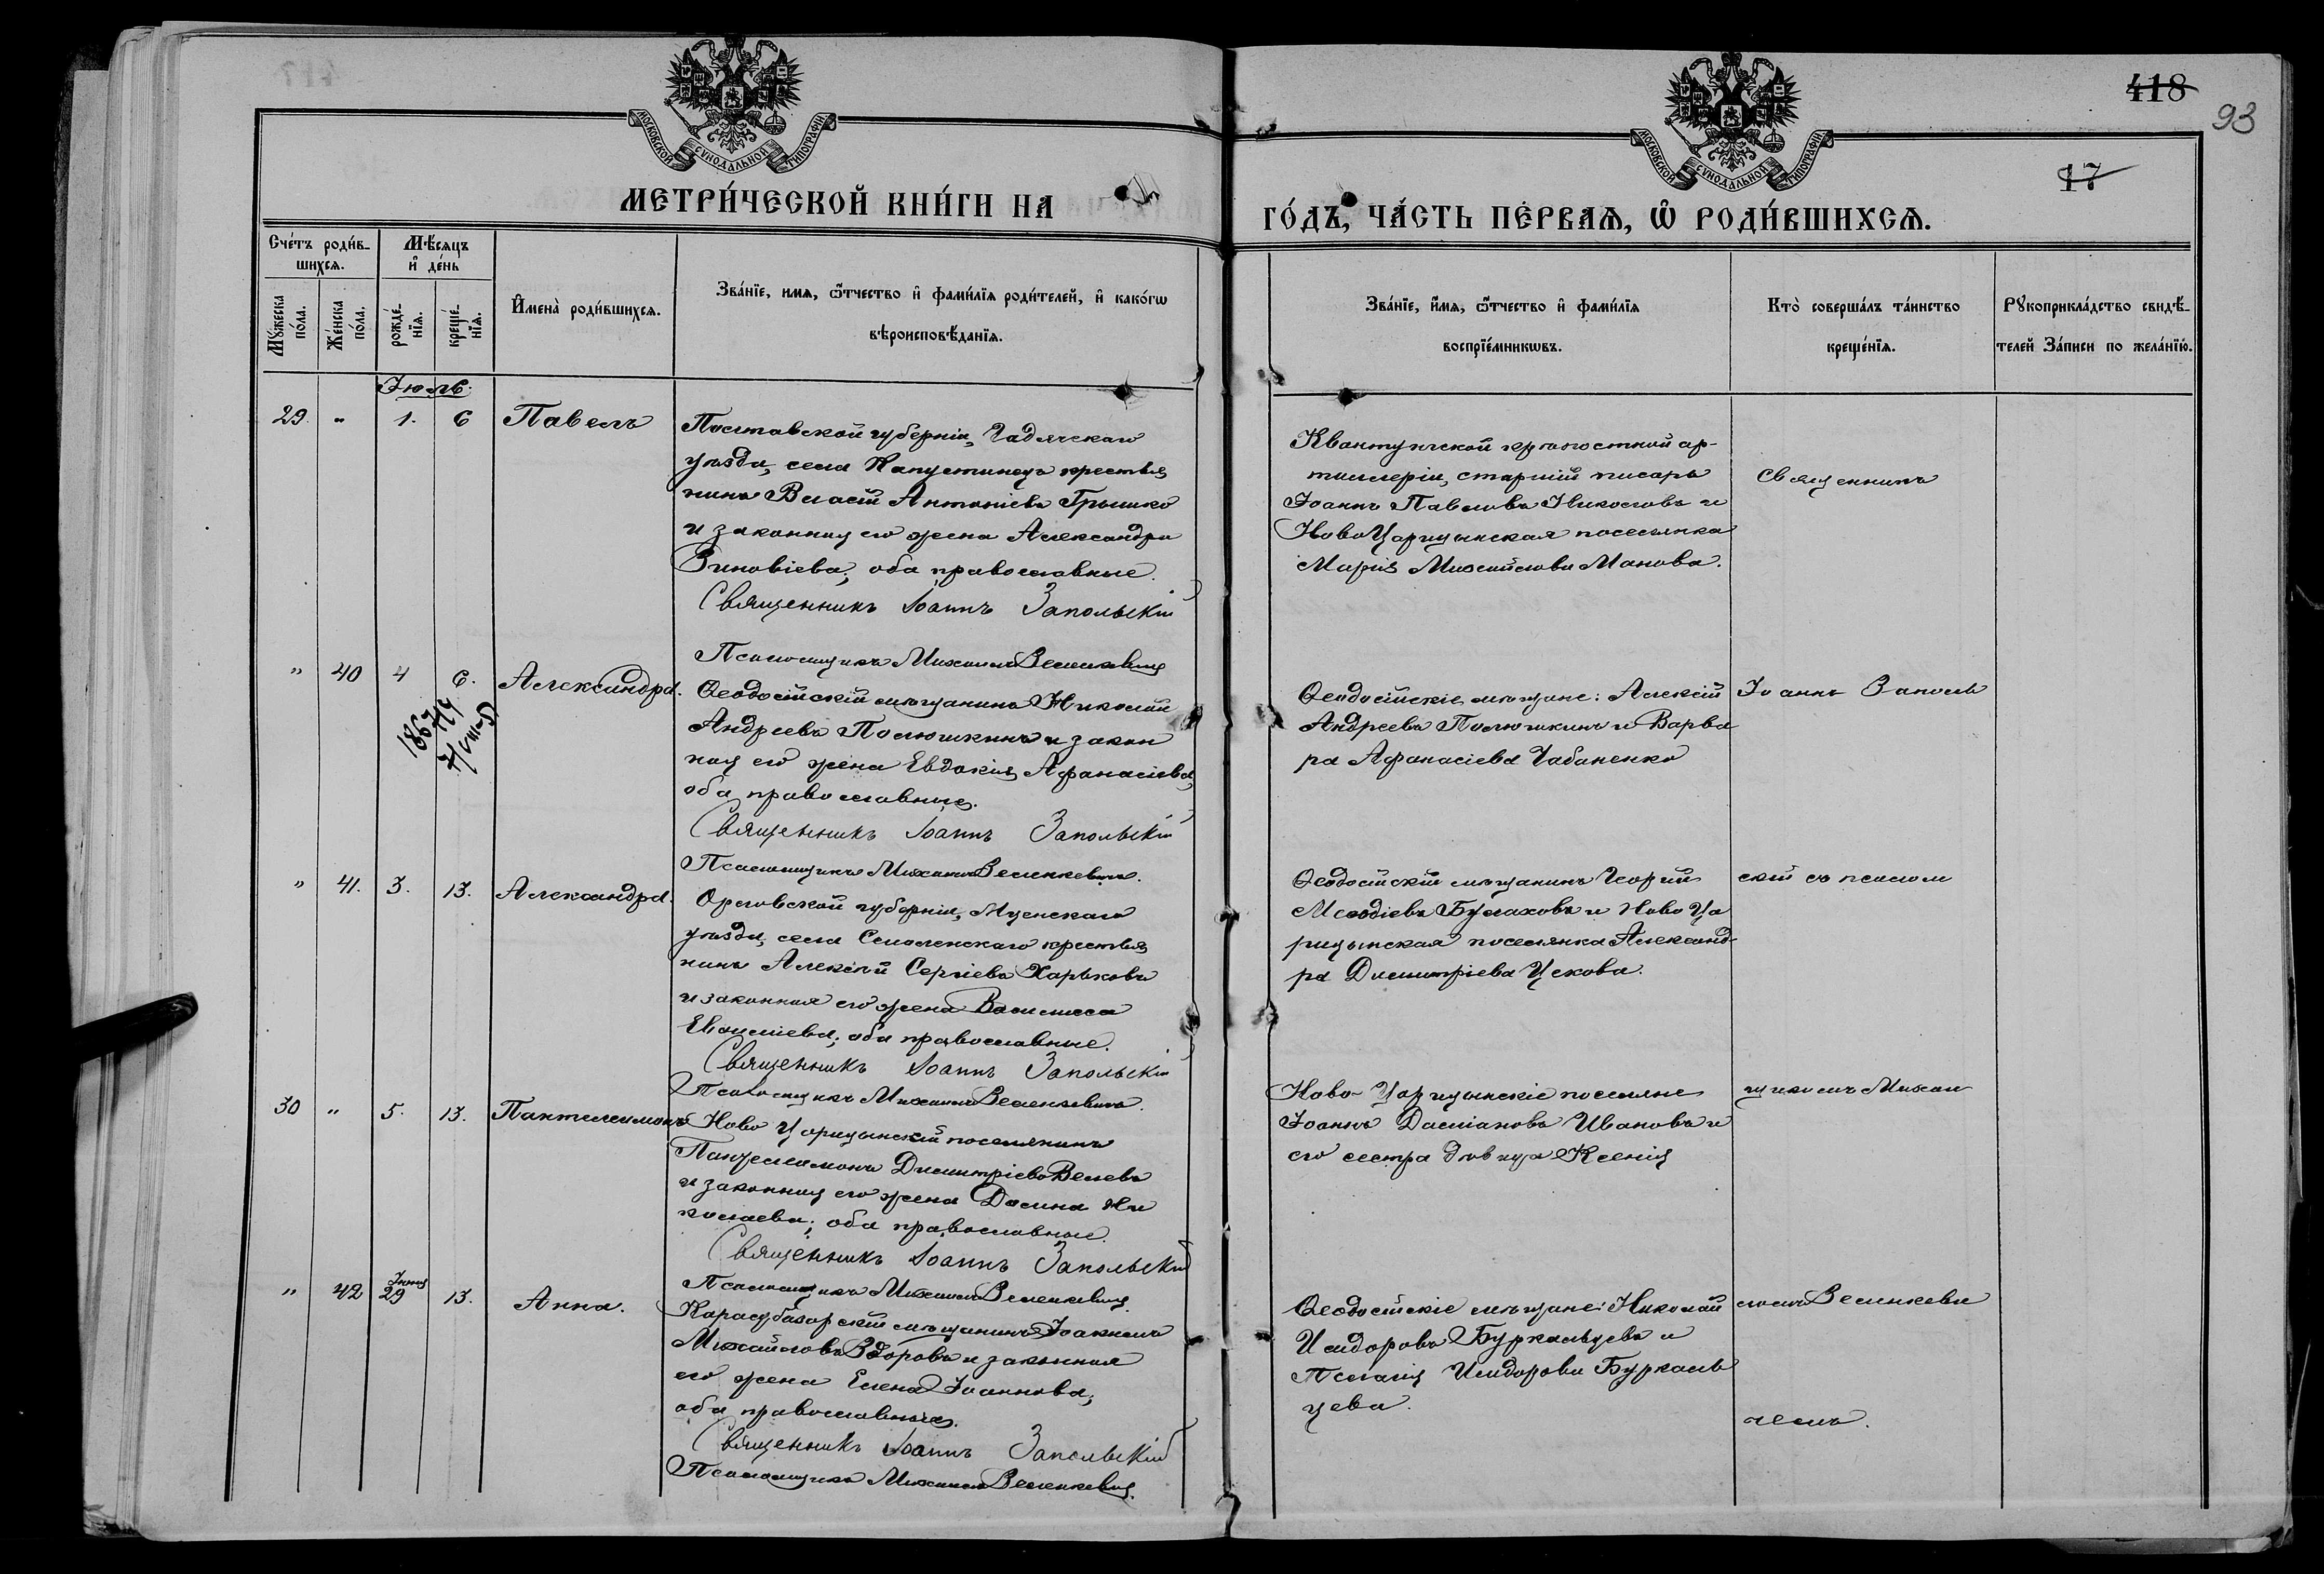 МОСКОВСКОЙ СѴНОДАЛЬНОЙ ТИПОГРАФІИ
МЕТРИ́ЧЕСКОЙ КНИ́ГИ НА
Сче́тъ роди́в-
шихсѧ.
Мѣ́сѧцъ
и҆ де́нь
Мꙋ́жеска по́ла.
Же́нска по́ла.
рожде́-нїѧ.
креще́-нїѧ.
И҆мена̀ роди́вшихсѧ.
Зва́нїе, имѧ, ѻ҆́тчество и҆ фами́лїѧ роди́телей, и҆ како́гѡ
вѣроисповѣ́данїѧ.
Іюль.
29. " 1. 6 Павелъ
Полтавской губерніи, Гадячскаго
уѣзда, села Капустинецъ крестья
нинъ Власій Антоніевъ Гришко
и законная его жена Александра
Зиновіева; оба православные.
Священникъ Іоаннъ Запольскій
Псаломщикъ Михаилъ Веленкевич
" 40 4 6. Александра.
1867
Ѳеодосійскій мѣщанинъ Николай
Андреевъ Полюшкинъ и закон
ная его жена Евдокія Афанасіева,
оба православные.
Священникъ Іоаннъ Запольскій
Псаломщикъ Михаилъ Веленкевичъ.
" 41. 3. 13. Александра.
Орловской губерніи, Мценскаго
уѣзда, села Смоленскаго крестья
нинъ Алексѣй Сергіевъ Харьковъ
и законная его жена Василисса
оба православные.
Священникъ Іоаннъ Запольскій
Псаломщикъ Михаилъ Веленкевичъ.
30 " 5. 13. Пантелеимонъ
Ново Царицынскій поселянинъ
Пантелеимонъ Димитріевъ Велевъ
и законная его жена Домна Ни
колаева; оба православные.
Священникъ Іоаннъ Запольскій
Псаломщикъ Михаилъ Веленкевич
" 42 Іюня 29 13. Анна.
Карасубазарскій мѣщанинъ Іоакимъ
Михайловъ Здоровъ и законная
его жена Елена Іоаннова,
оба православные.
Священникъ Іоаннъ Запольскій
Псаломщикъ Михаилъ Веленкевич.
418
93
17
МОСКОВСКОЙ СѴНОДАЛЬНОЙ ТИПОГРАФІИ
ГО́ДЪ, ЧА́СТЬ ПЕ́РВАѦ, Ѽ РОДИ́ВШИХСѦ.
Зва́нїе, и҆́мѧ, ѻ҆́тчество и҆ фами́лїѧ
воспрїе́мникѡвъ.
Кто̀ соверша́лъ та́инство
креще́нїѧ.
Рꙋкоприкла́дство свидѣ́-
телей За́писи по жела́нїю.
Квантунской крѣпостной ар-
тиллеріи, старшій писарь
Іоаннъ Павловъ Николовъ и
Ново Царицынская поселянка
Марія Михайлова Манова.
Священникъ
Ѳеодосійскіе мѣщане: Алексій
Андреевъ Полюшкинъ и Варва
ра Афанасіева Чабаненко
Іоаннъ Заполь
Ѳеодосійскій мѣщанинъ Георгій
Меѳодіевъ Булаховъ и Ново Ца
рицынская поселянка Александ-
ра Димитріева Цекова.
скій съ псалом
Ново-Царицынскіе поселяне
Іоаннъ Даміановъ Ивановъ и
его сестра дѣвица Ксенія
щикомъ Михаи
Ѳеодосійскіе мѣщане: Николай
Исидоровъ Буркальцевъ и
Пелагія Исидорова Буркаль
цева.
ломъ Веленкеви
чемъ.